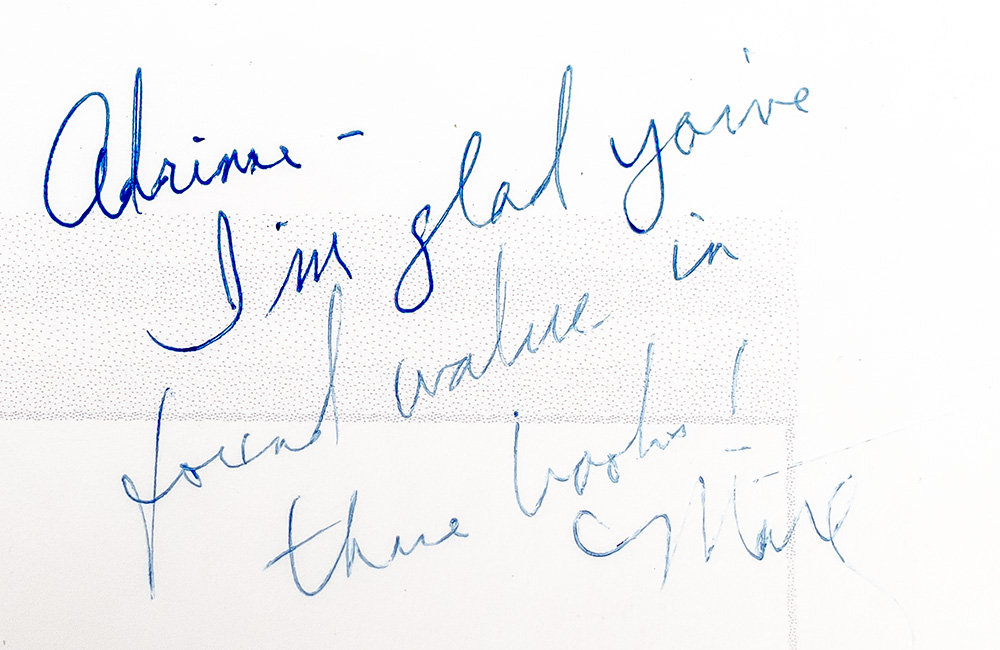 Adrinne -
I'm glad you've
found value in
these books!
- Mark